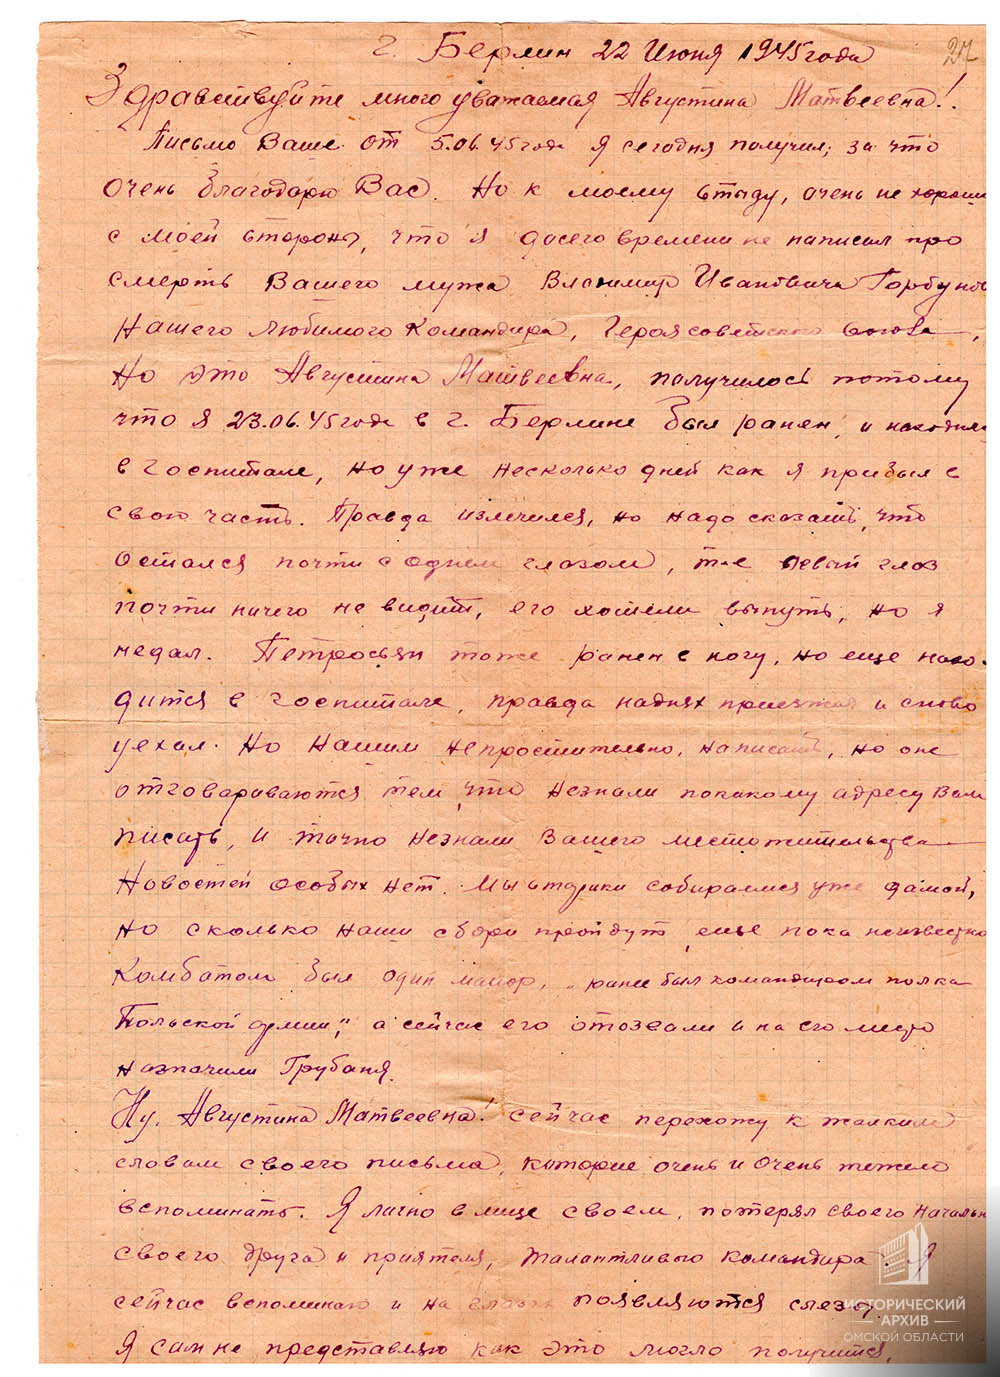 27
г. Берлин 22 Июня 1945 года
Здравствуйте много уважаемая Августина Матвеевна!.
Письмо Ваше от 5.06.45 года я сегодня получил, за что
очень благодарю Вас. Но к моему стыду, очень не хорошо
с моей стороны, что я досего времени не написал про
смерть Вашего мужа Владимир Ивановича Горбунов
Нашего любимого Командира, Героя советского союза,
Но это Августина Матвеевна, получилось потому
что я 23.06.45 года в г. Берлине был ранен, и находил
в госпитале, но уже несколько дней как я прибыл в
свою часть. Правда излечился, но надо сказать, что
остался почти с одним глазом, т-е левый глаз
почти ничего не видит, его хотели вынуть, но я
недал. Петросьян тоже ранен в ногу, но еще нахо-
дится в госпитале, правда наднях приезжал и снова
уехал. Но нашим непростительно, написать, но они
отговариваются тем, что незнали покакому адресу Вам
писать, и точно незнали Вашего местожительства
Новостей особых нет. Мы старики собираемся уже дамой,
но сколько наши сборы пройдут, еще пока неизвестно
Комбатом был один майор, „ранее был командиром полка
Польской армии", а сейчас его отозвали и на его место
назначили Грубаня.
Ну, Августина Матвеевна! сейчас перехожу к жалким
словам своего письма, которые очень и очень тяжело
вспоминать. Я лично в лице своем, потерял своего Начальн
своего друга и приятеля, талантливого командира. Я
сейчас вспоминаю и на глазах появляются слезы.
Я сам не представляю как это могло получится,
ИСТОРИЧЕСКИЙ
АРХИВ
ОМСКОЙ ОБЛАСТИ